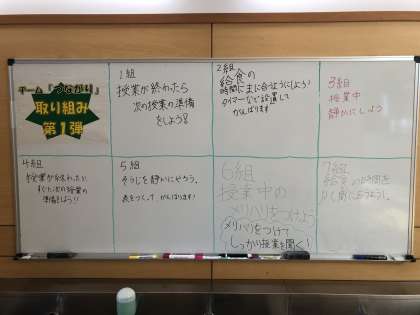 チーム「つながり」
取り組み
第1弾
1組
授業が終わったら
次の授業の準備
をしよう!
2組
給食の
時間に間に合うようにしよう!
タイマーなど設置して
がんばります
3組
授業中
静かにしよう
4組
授業が終わったら
すぐに次の授業の
準備をしよう!!
5組
そうじを静かにやろう。
表をつくって、がんばります!
6組
授業中の
メリハリをつけよう
メリハリをつけて
しっかり授業を聞く!
7組
給食の